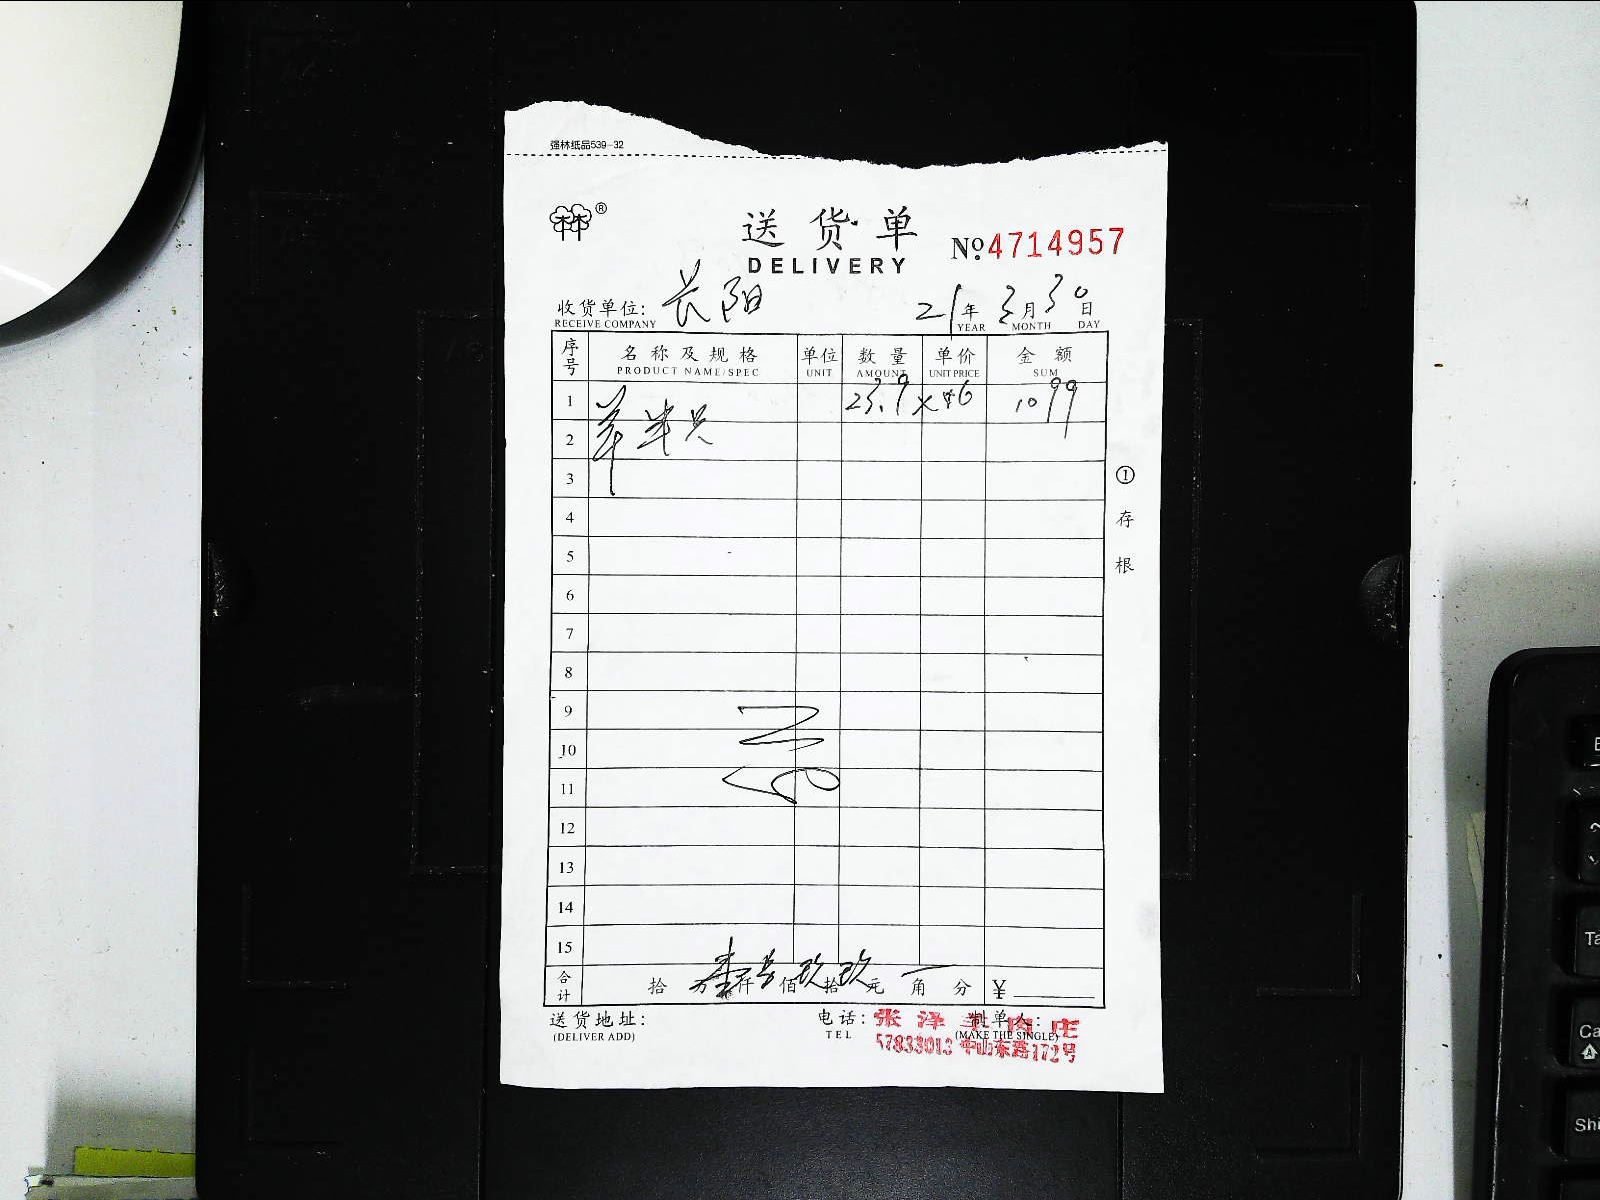 强林纸品539-32
®
送货单
№4714957
DELIVERY
收货单位: 长阳 21年3月30日
RECEIVE COMPANY YEAR MONTH DAY
序号 名称及规格 单位 数量 单价 金额
PRODUCT NAME/SPEC UNIT AMOUNT UNIT PRICE SUM
1 羊半只 23.9 × 46 1099
2
3
4
5
6
7
8
9
10
11
12
13
14
15
合计 拾 万 壹仟 零佰 玖拾 玖元 角 分 ¥
① 存根
送货地址: 电话: 制单人:
(DELIVER ADD) TEL (MAKE THE SINGLE)
张泽羊肉庄
57833013 中山东路172号
E
Ta
Ca
A
Shi